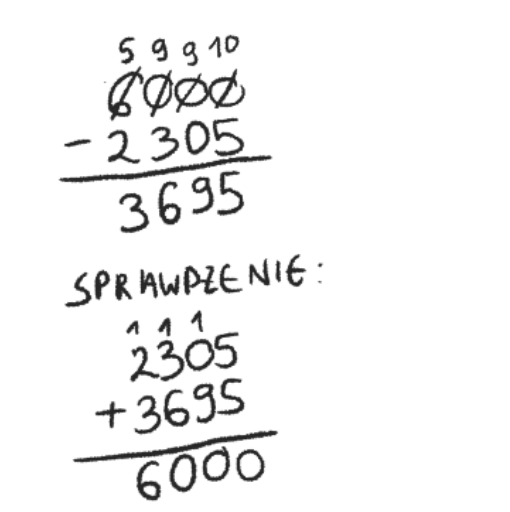 5 9 9 10
6000
- 2305
3695
SPRAWDZENIE:
1 1 1
2305
+ 3695
6000